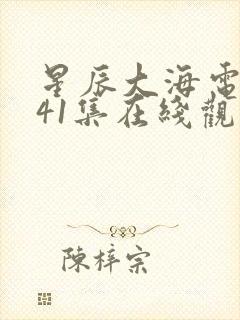 星辰大海電
41集在綫觀
陳梓宗